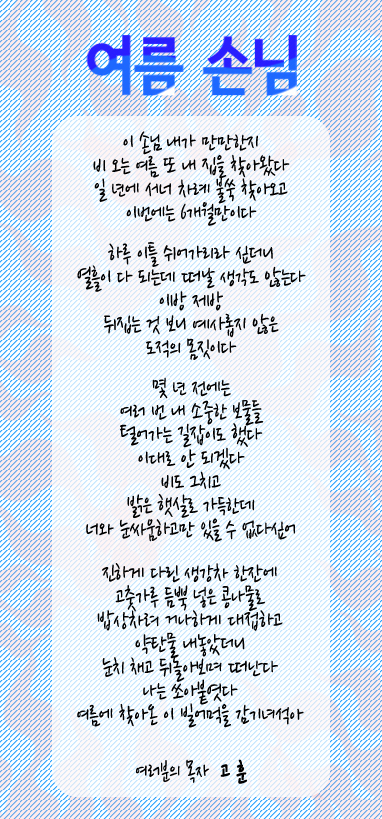 여름 손님
이 손님 내가 만만한지
비 오는 여름 또 내 집을 찾아왔다
일 년에 서너 차례 불쑥 찾아오고
이번에는 6개월만이다
하루 이틀 쉬어가리라 싶더니
열흘이 다 되는데 떠날 생각도 않는다
이방 제방
뒤집는 것 보니 예사롭지 않은
도적의 몸짓이다
몇 년 전에는
여러 번 내 소중한 보물들
털어가는 길잡이도 했다
이대로 안 되겠다
비도 그치고
밝은 햇살로 가득한데
너와 눈싸움하고만 있을 수 없다싶어
진하게 다린 생강차 한잔에
고춧가루 듬뿍 넣은 콩나물로
밥상차려 거나하게 대접하고
약탄물 내놓았더니
눈치 채고 뒤돌아보며 떠난다
나는 쏘아붙였다
여름에 찾아온 이 빌어먹을 감기녀석아
여러분의 목자 고 훈